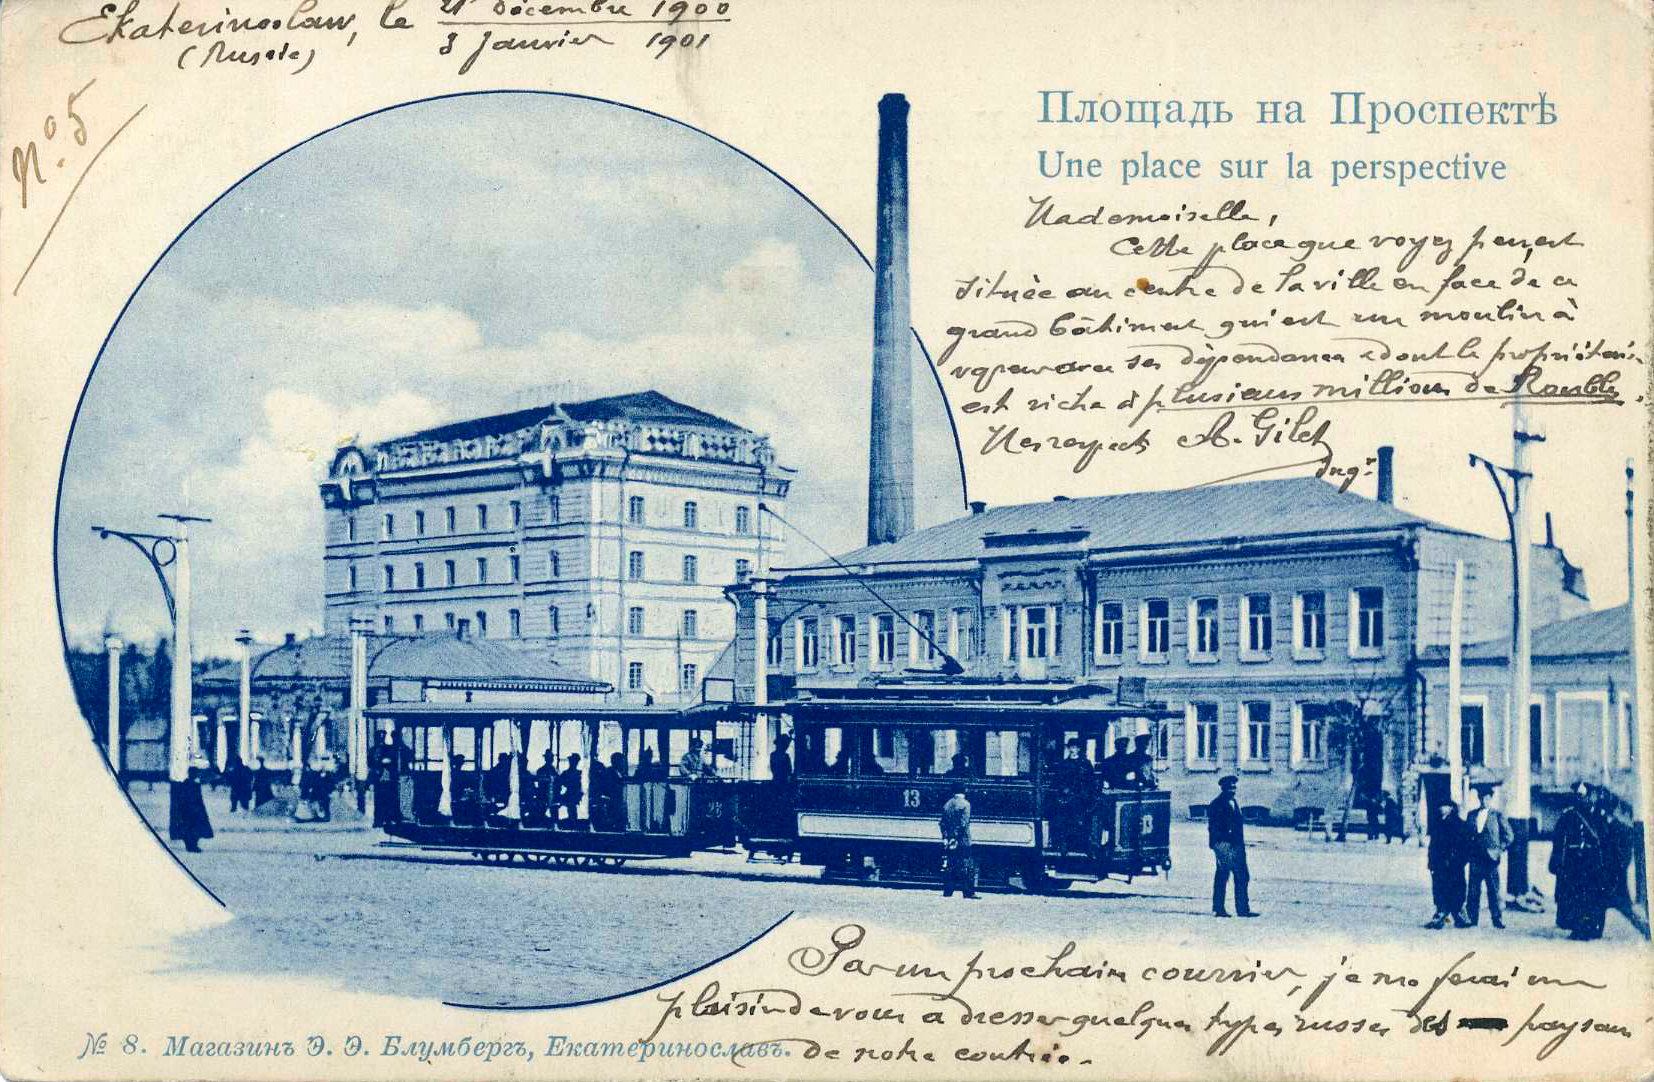 Ekaterinoslaw, le 21 décembre 1900
(Russie) 3 Janvier 1901
No. 5
Площадь на Проспектѣ
Une place sur la perspective
Mademoiselle,
Cette place que voyez peu, est
située au centre de la ville en face de ce
grand bâtiment qui est un moulin à
vapeur avec ses dépendances et dont le propriétaire
est riche à plusieurs millions de Rouble.
Mes respects A. Gilet
Ingr.
13
13
Par un prochain courrier, je me ferai un
plaisir de vous adresser quelques types russes des paysans
de notre contrée.
№ 8. Магазинъ Э. Э. Блумбергъ, Екатеринославъ.